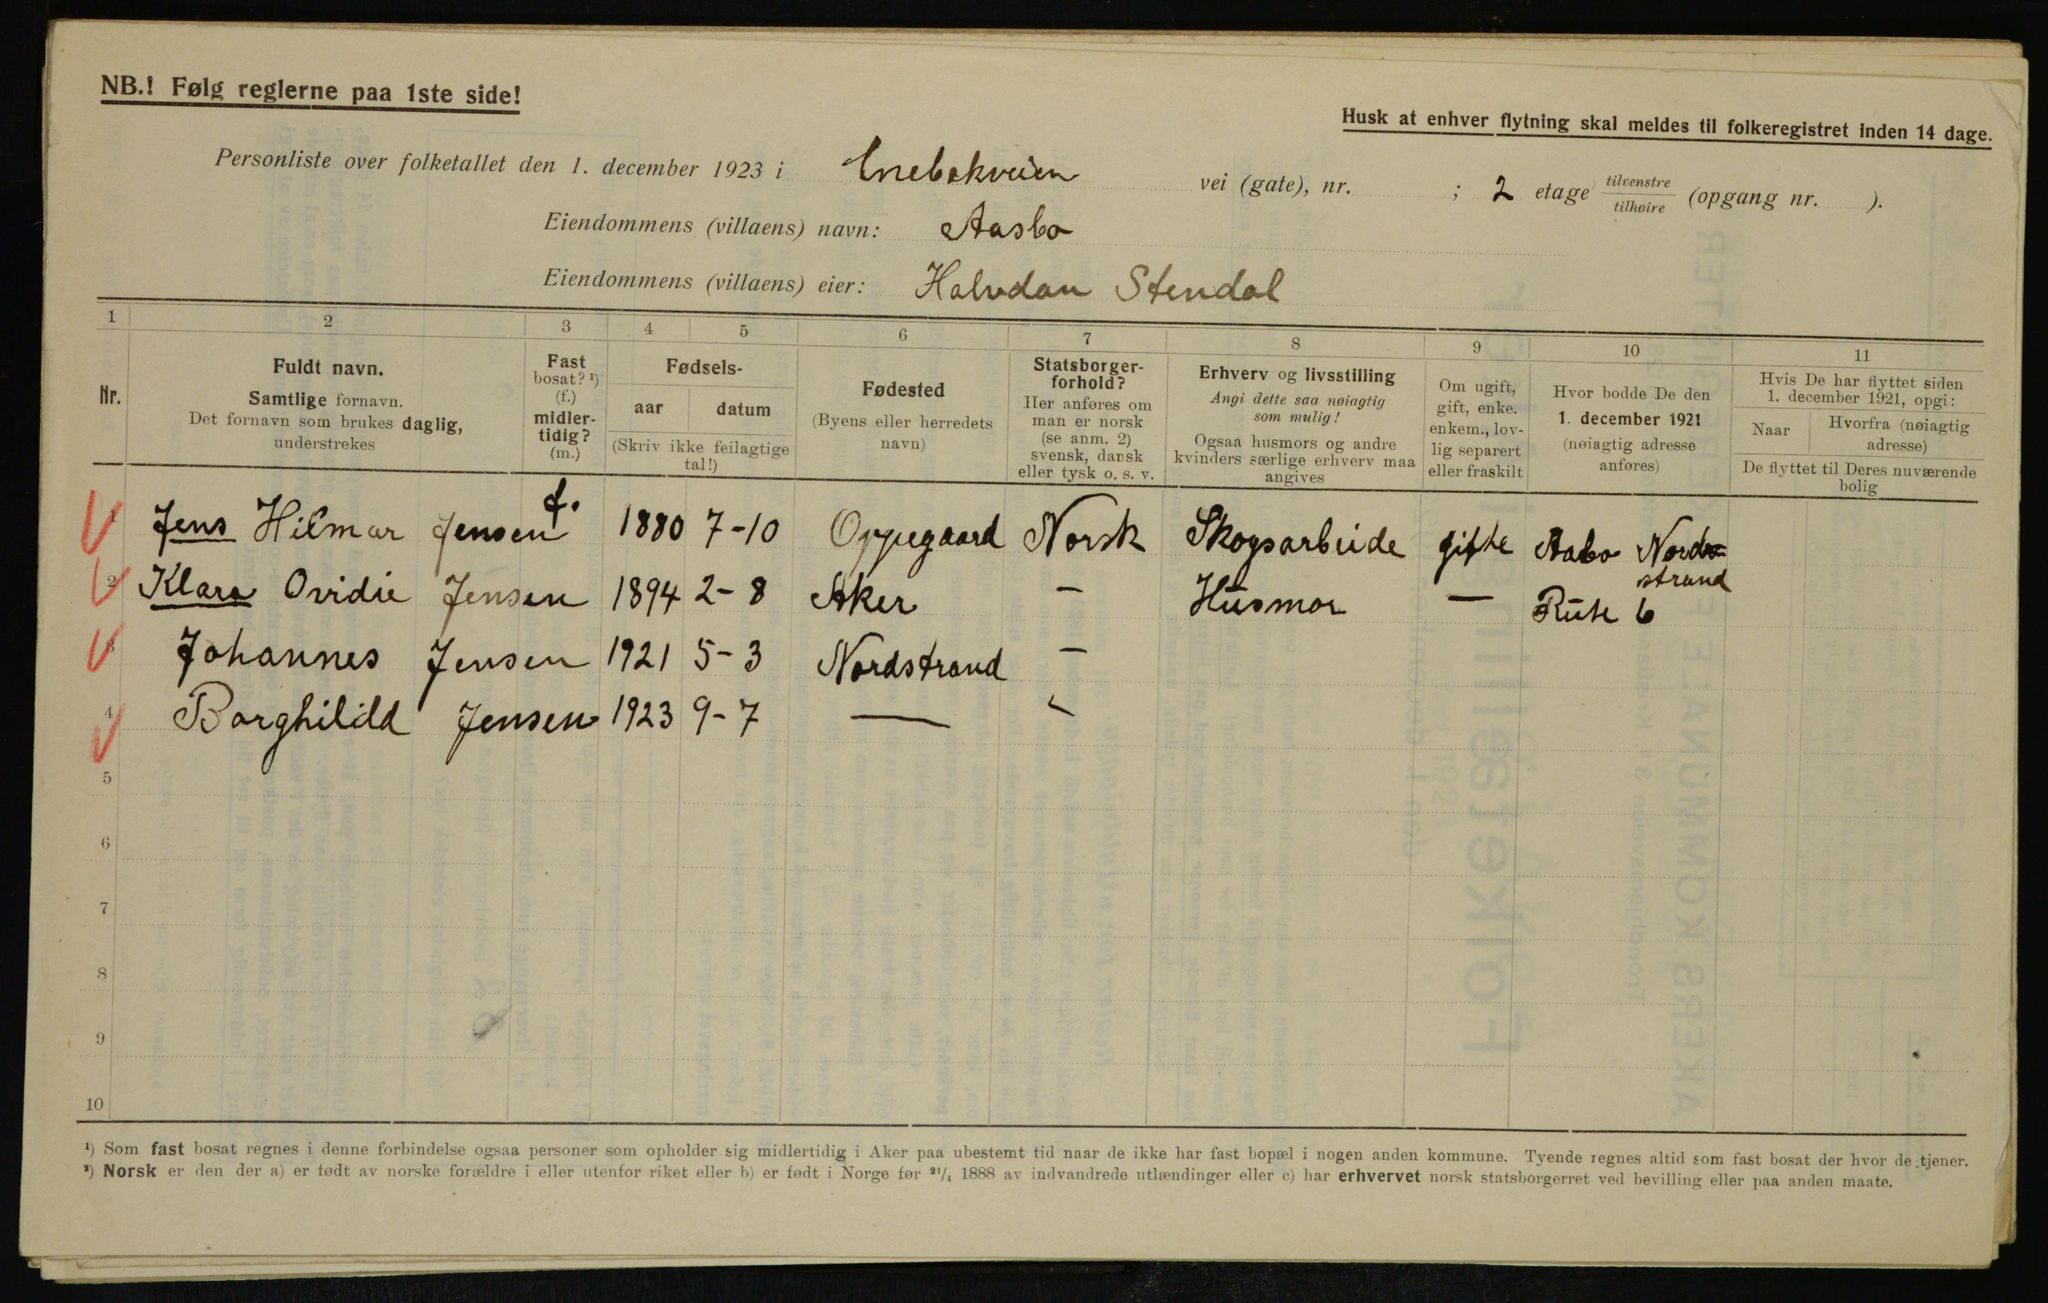 NB.! Følg reglerne paa 1ste side!
Husk at enhver flytning skal meldes til folkeregistret inden 14 dage.
Personliste over folketallet den 1. december 1923 i Enebakveien vei (gate), nr. ; 2 etage tilvenstre/tilhøire (opgang nr. ).
Eiendommens (villaens) navn: Aasbo
Eiendommens (villaens) eier: Halvdan Stendal
1 2 3 4 5 6 7 8 9 10 11
Nr.
Fuldt navn.
Samtlige fornavn.
Det fornavn som brukes daglig,
understrekes
Fast
bosat? ¹)
(f.)
midler-
tidig?
(m.)
Fødsels-
aar datum
(Skriv ikke feilagtige
tal!)
Fødested
(Byens eller herredets
navn)
Statsborger-
forhold?
Her anføres om
man er norsk
(se anm. 2)
svensk, dansk
eller tysk o. s. v.
Erhverv og livsstilling
Angi dette saa nøiagtig
som mulig!
Ogsaa husmors og andre
kvinders særlige erhverv maa
angives
Om ugift,
gift, enke.
enkem., lov-
lig separert
eller fraskilt
Hvor bodde De den
1. december 1921
(nøiagtig adresse
anføres)
Hvis De har flyttet siden
1. december 1921, opgi:
Naar
Hvorfra (nøiagtig
adresse)
De flyttet til Deres nuværende
bolig
1 Jens Hilmar Jensen f. 1880 7-10 Oppegaard Norsk Skogsarbeide gifte Aabo Nord-
strand
2 Klara Ovidie Jensen 1894 2-8 Aker — Husmor — Rute 6
3 Johannes Jensen 1921 5-3 Nordstrand —
4 Borghildd Jensen 1923 9-7 — -
5
6
7
8
9
10
¹) Som fast bosat regnes i denne forbindelse ogsaa personer som opholder sig midlertidig i Aker paa ubestemt tid naar de ikke har fast bopæl i nogen anden kommune. Tyende regnes altid som fast bosat der hvor de tjener.
²) Norsk er den der a) er født av norske forældre i eller utenfor riket eller b) er født i Norge før ²¹/₄ 1888 av indvandrede utlændinger eller c) har erhvervet norsk statsborgerret ved bevilling eller paa anden maate.